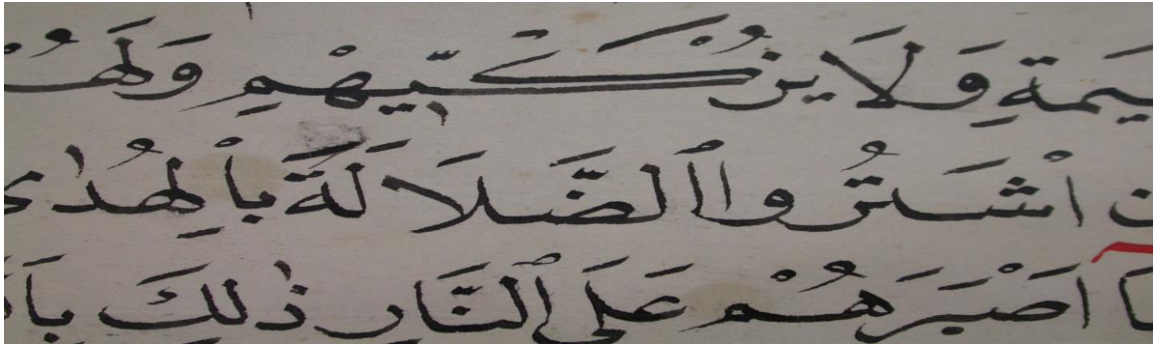 يمة ولا يزكيهم ولهم
ن اشتروا الضلالة بالهدى
ا اصبرهم على النار ذلك بان